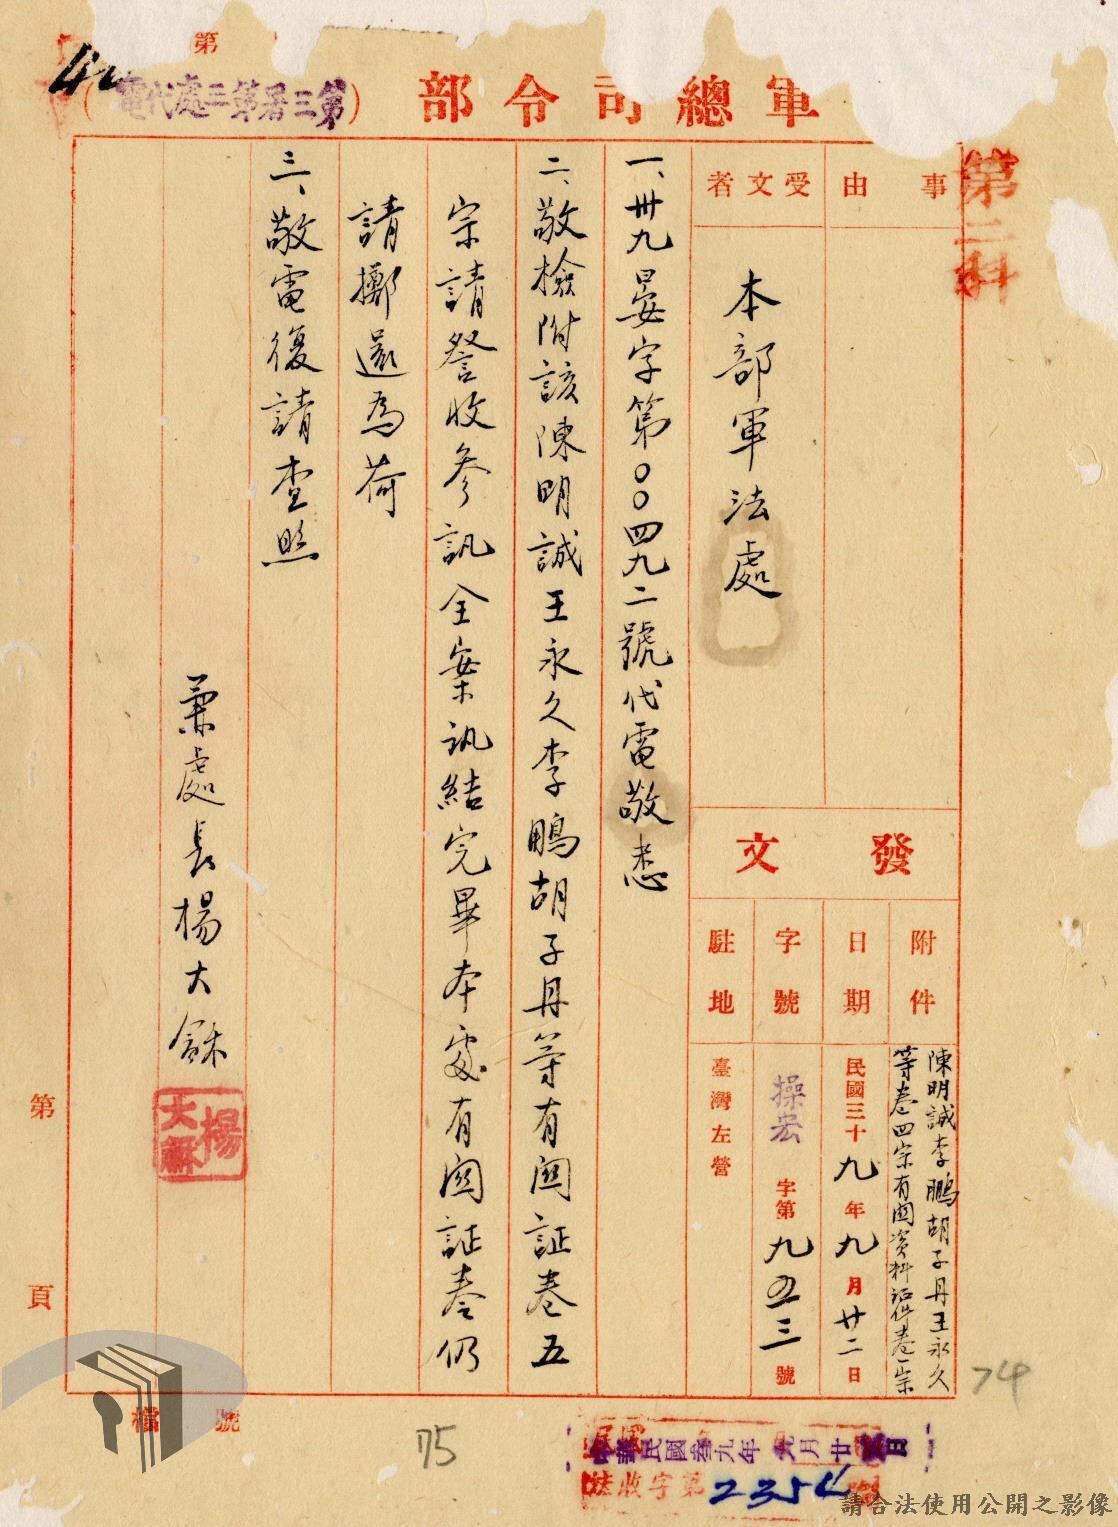 軍總司令部
（第三署第二處代電）
第
第二科
事由
受文者
本部軍法處
發文
附件
陳明誠李鵬胡子丹王永久
等卷四宗有関資料証件卷一宗
日期
民國三十九年九月廿二日
字號
操宏字第九五三號
駐地
臺灣左營
一、卅九晏字第００四九二號代電敬悉
二、敬檢附該陳明誠王永久李鵬胡子丹等有関証卷五
宗請詧收參訊全案訊結完畢本處有関証卷仍
請擲還為荷
三、敬電復請查照
兼處長楊大龢
楊大龢
第 頁
檔號
中華民國叁九年九月廿 日
法收字第2354
74
75
請合法使用公開之影像